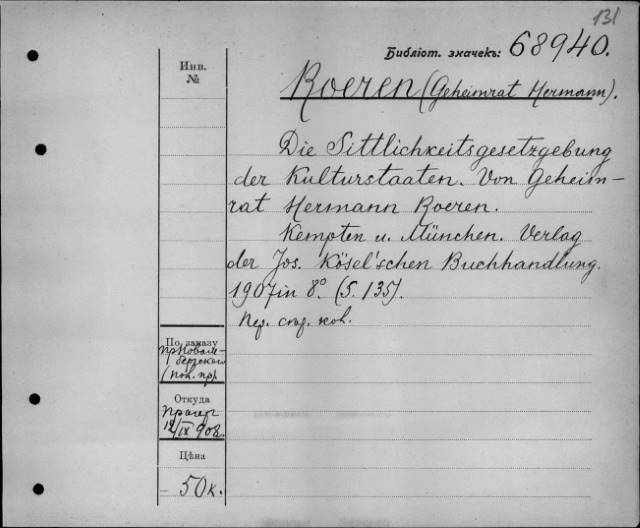 131
Библіот. значекъ: 68940.
Инв.
№
Roeren (Geheimrat Hermann).
Die Sittlichkeitsgesetzgebung
der Kulturstaaten. Von Geheim-
rat Hermann Roeren.
Kempten u. München. Verlag
der Jos. Kösel'schen Buchhandlung.
1907 in 8°. (S. 135).
Пер. стар. кол.
По заказу
пр. Новом-
бергского
Откуда
Прагер
12/IX 908.
Цѣна
— 50 к.